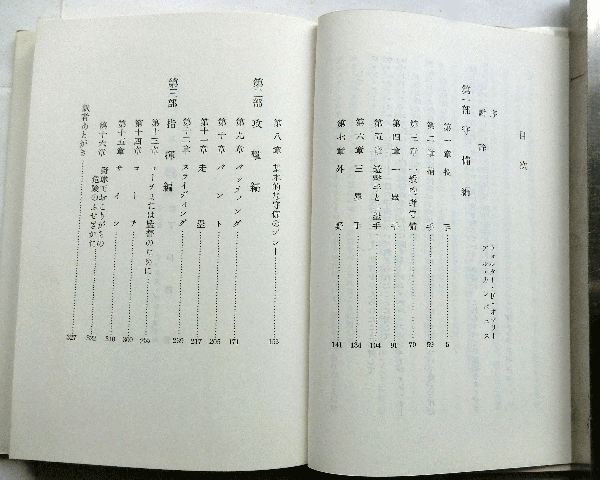 目次
序 ウォルター・F・オマリー
謝辞 アル・カンパニス
第一部 守備編
第一章 投手 5
第二章 捕手 52
第三章 一般的野守備 70
第四章 一塁手 91
第五章 遊撃手と二塁手 104
第六章 三塁手 134
第七章 外野 141
第八章 基本的な守備のプレー 153
第二部 攻撃編
第九章 バッティング 171
第十章 バント 205
第十一章 走塁 217
第十二章 スライディング 239
第三部 指揮編
第十三章 コーチまたは監督のために
第十四章 コーチ 300
第十五章 サイン 310
第十六章 野球でおこりがちの危険のふせぎかた
訳者あとがき 327